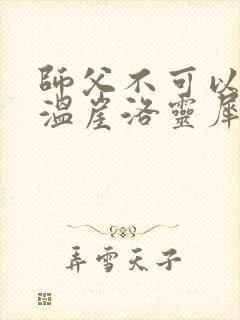 師父不可以
溫崖洛靈犀
弄雪天子